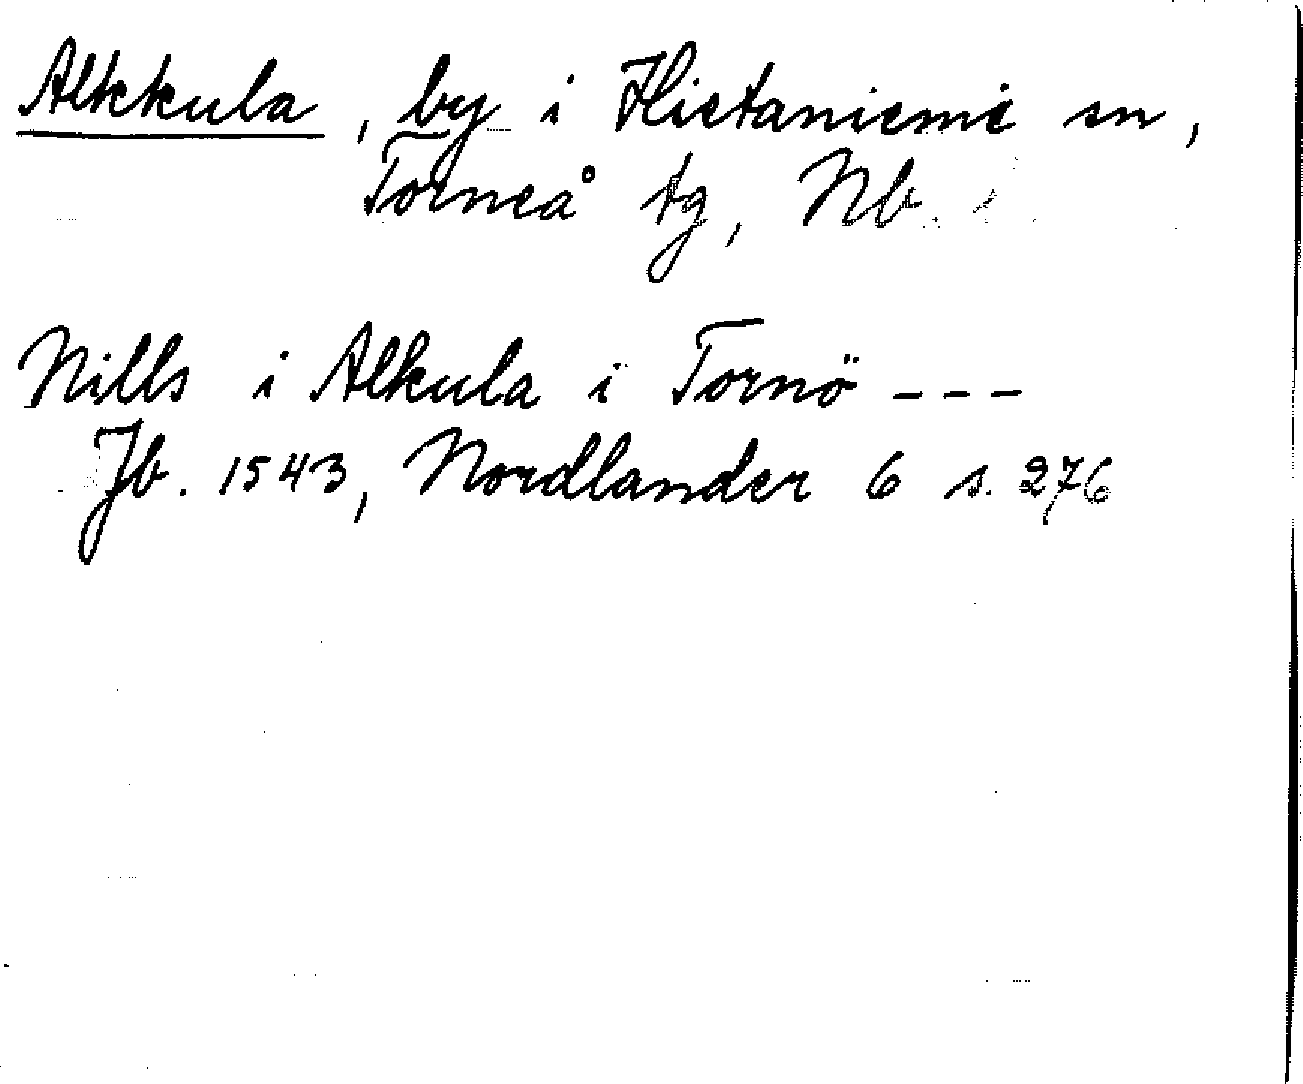 Alkkula, by i Hietaniemi sn,
Torneå tg, Nb.
Nills i Alkula i Tornö - - -
Jb. 1543, Nordlander 6 s. 276